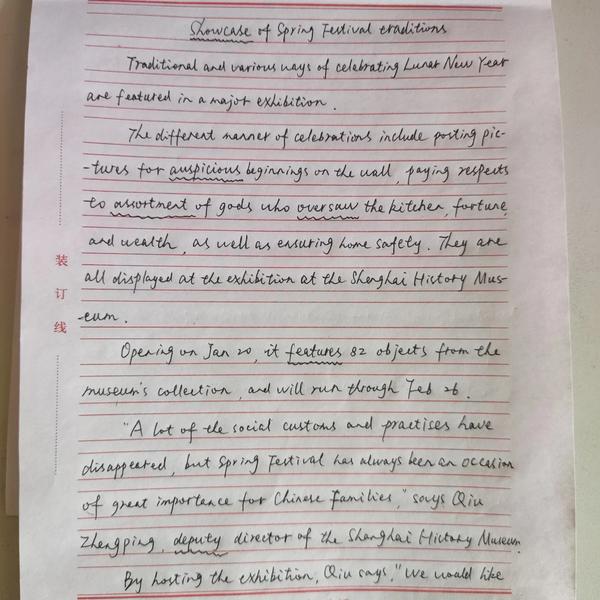 Showcase of Spring Festival traditions
Traditional and various ways of celebrating Lunar New Year
are featured in a major exhibition.
The different manner of celebrations include posting pic-
-tures for auspicious beginnings on the wall, paying respects
to assortment of gods who oversaw the kitchen, fortune,
and wealth, as well as ensuring home safety. They are
all displayed at the exhibition at the Shanghai History Mus-
-eum.
Opening on Jan 20, it features 82 objects from the
museum's collection, and will run through Feb 26.
"A lot of the social customs and practises have
disappeared, but Spring Festival has always been an occasion
of great importance for Chinese families," says Qiu
Zhengping, deputy director of the Shanghai History Museum.
By hosting the exhibition, Qiu says, "We would like
装
订
线